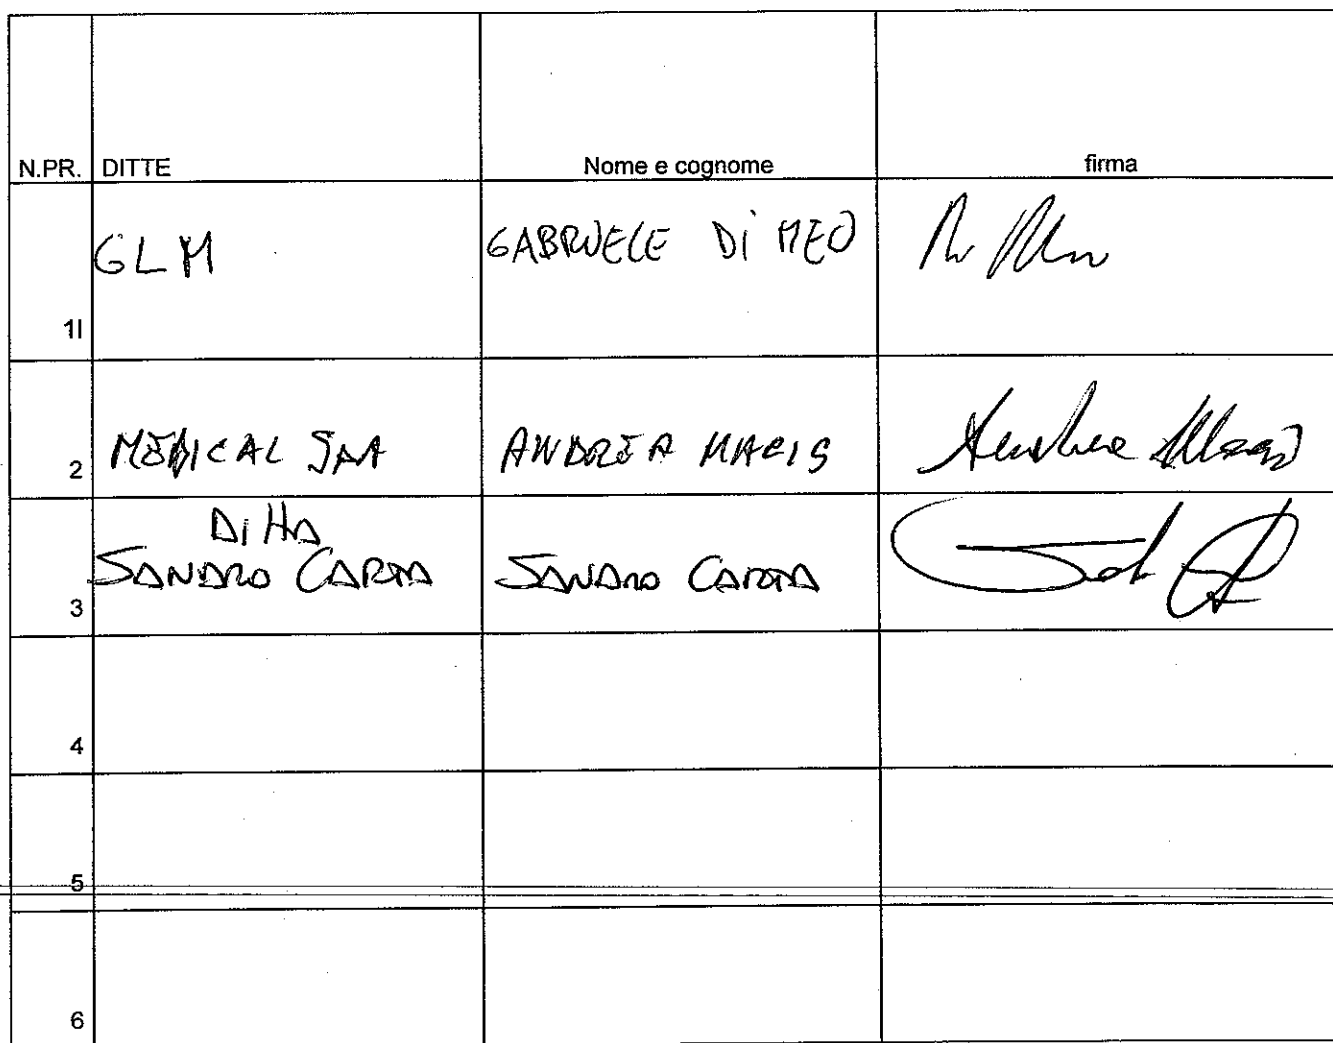 N.PR. DITTE Nome e cognome firma
GLM GABRIELE Di MEO
1I
2 MEDICAL SPA ANDREA MACIS Andrea Macis
Ditta
SANDRO CARTA SANDRO CARTA
3
4
5
6